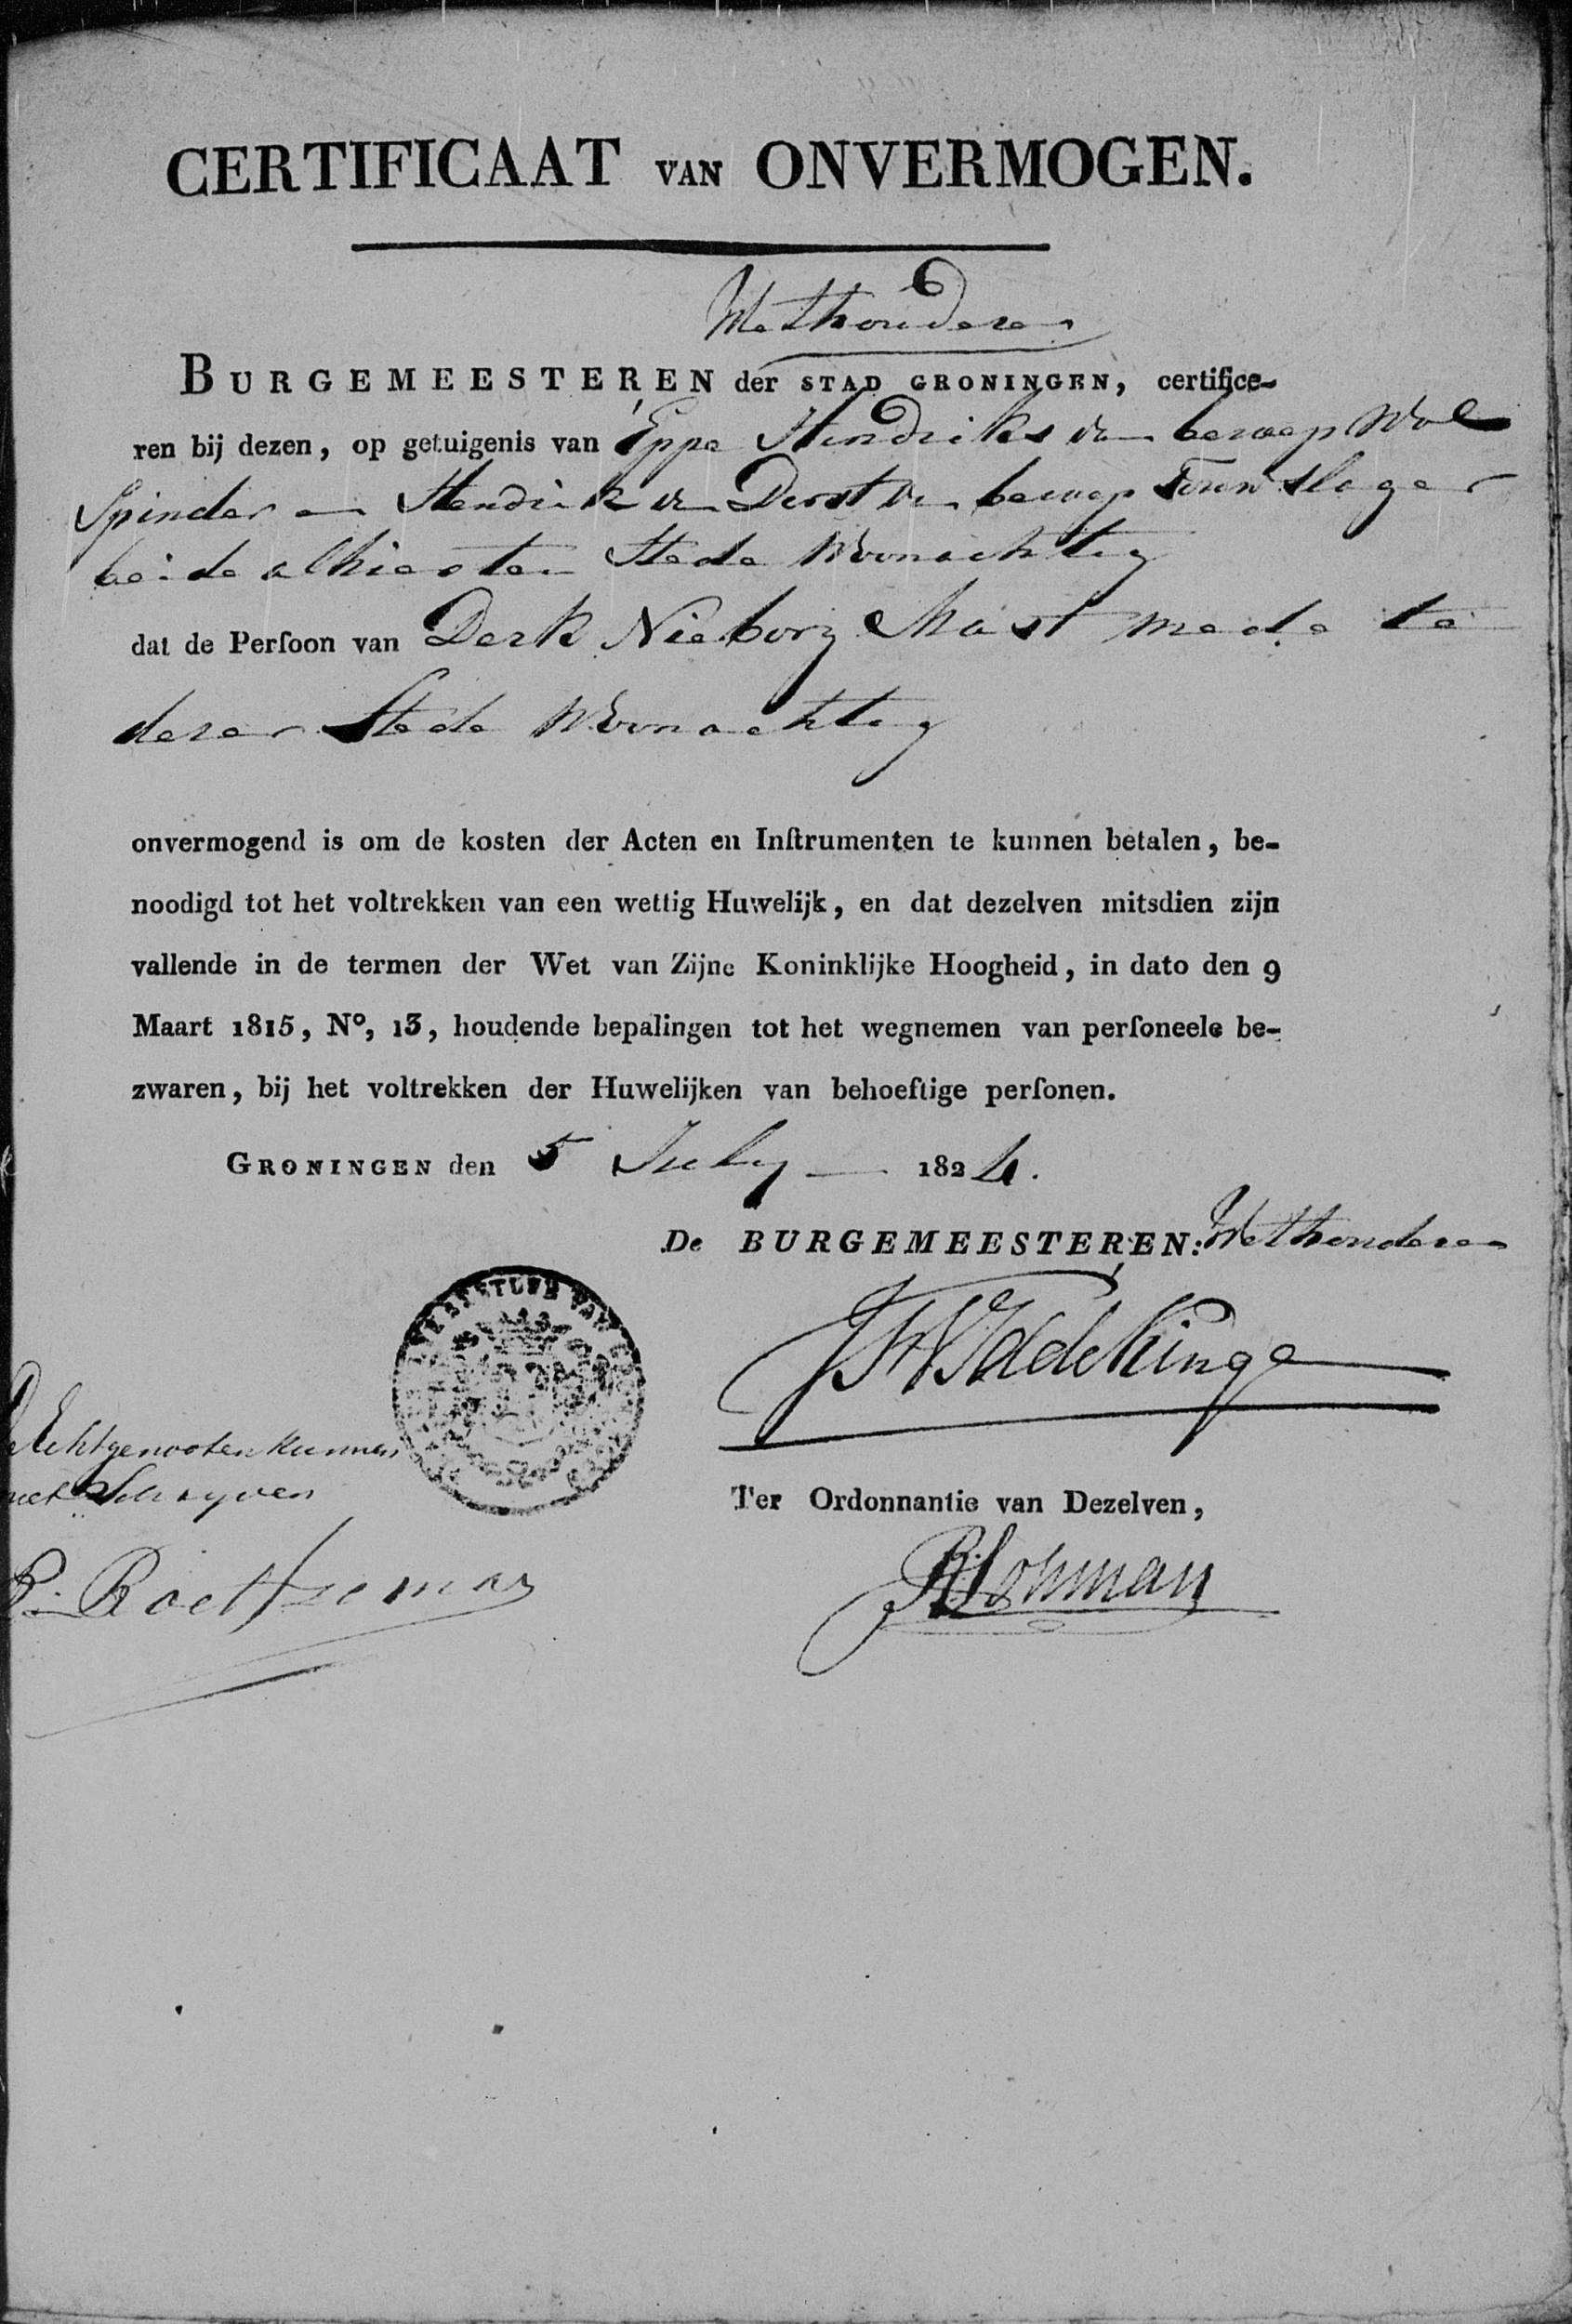 CERTIFICAAT VAN ONVERMOGEN.
Wethouderen
BURGEMEESTEREN der STAD GRONINGEN, certifice-
ren bij dezen, op getuigenis van Eppe Hendriks van beroep Wol
Spinder en Hendrik van Dorst van beroep Touwslager
beide alhier ter Stede Woonachtig
dat de Perſoon van Derk Nieborg Mast mede te
dezer Stede Woonachtig
onvermogend is om de kosten der Acten en Inſtrumenten te kunnen betalen, be-
noodigd tot het voltrekken van een wettig Huwelijk, en dat dezelven mitsdien zijn
vallende in de termen der Wet van Zijne Koninklijke Hoogheid, in dato den 9
Maart 1815, Nº, 13, houdende bepalingen tot het wegnemen van perſoneele be-
zwaren, bij het voltrekken der Huwelijken van behoeftige perſonen.
GRONINGEN den 5 July 1824.
De BURGEMEESTEREN: Wethouderen
Iddekinge
Echtgenooten kunnen
niet Schryven
Ter Ordonnantie van Dezelven,
Lohman